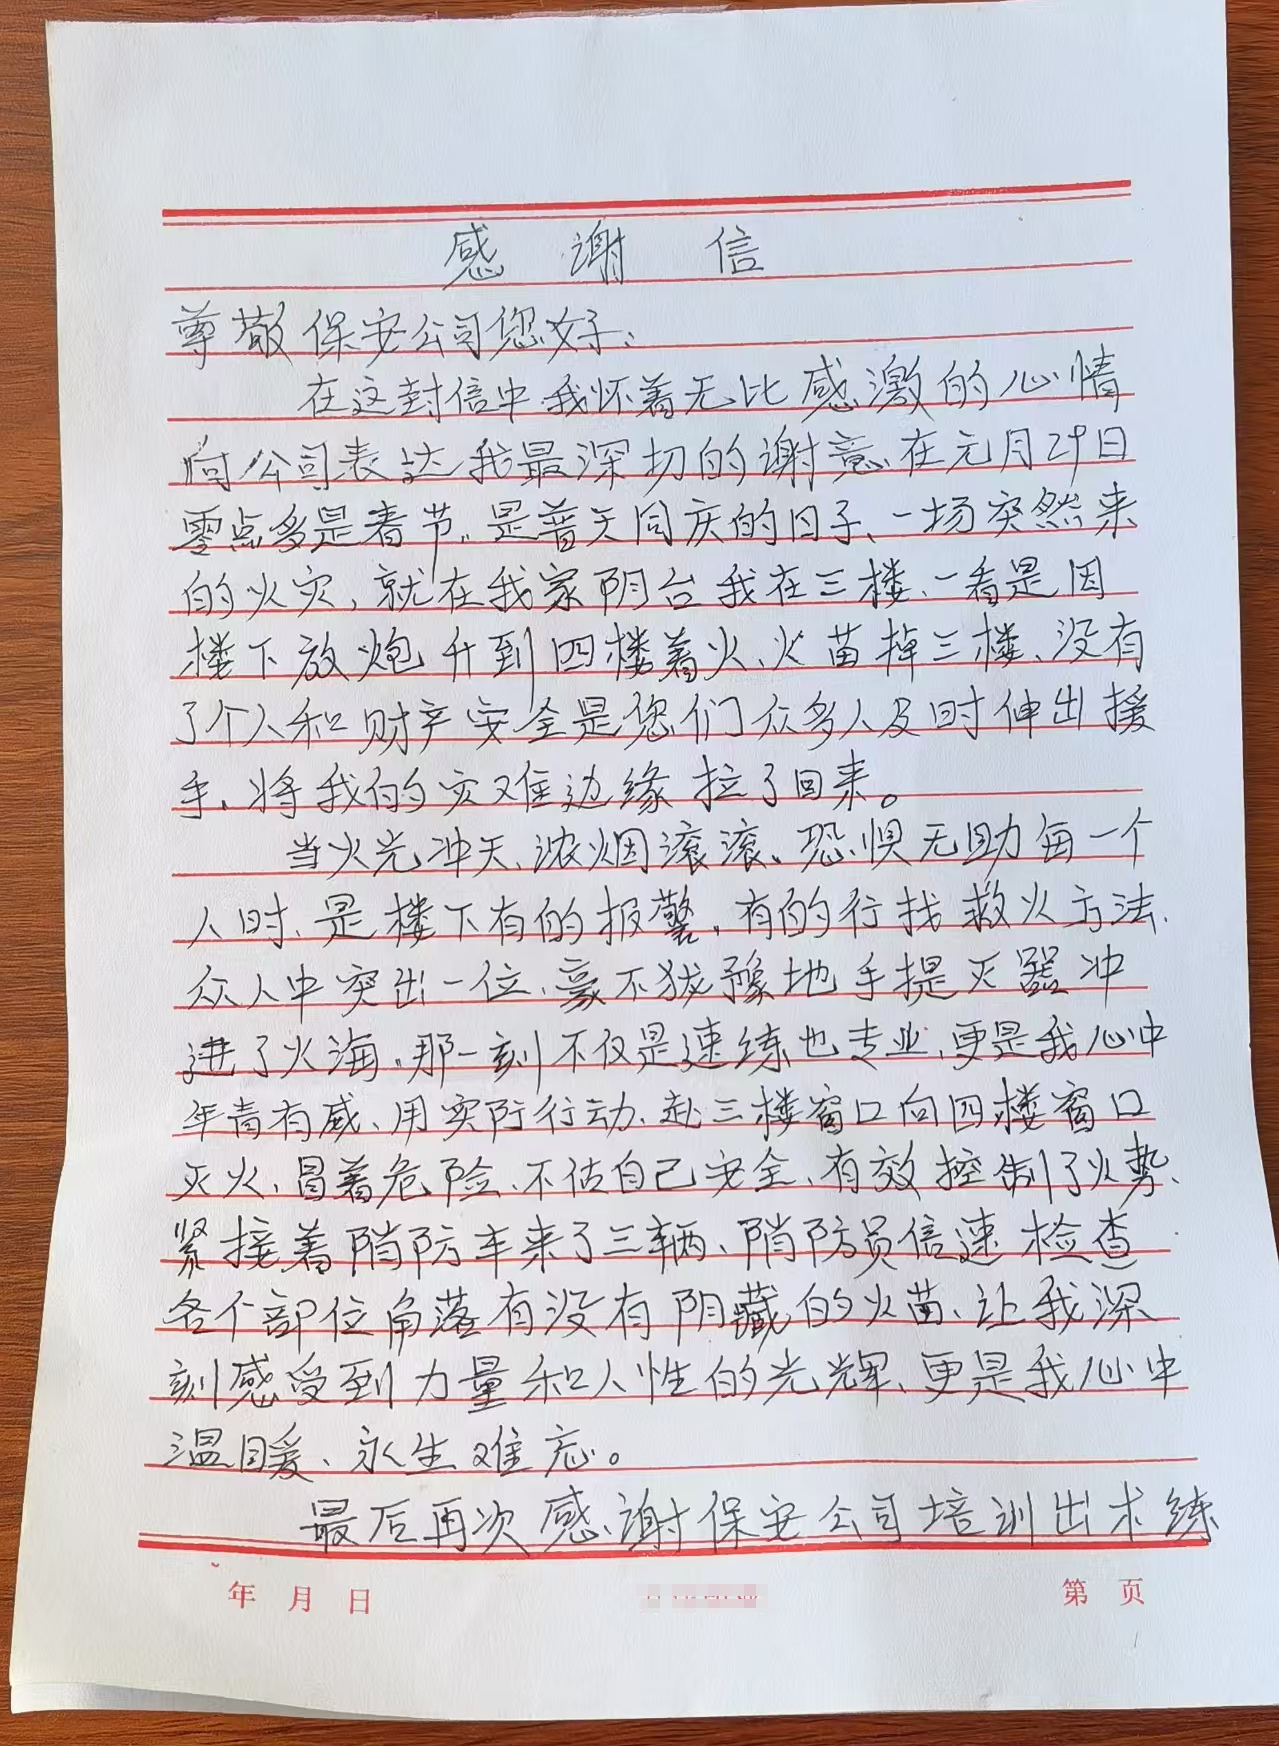 感谢信
尊敬保安公司您好:
在这封信中我怀着无比感激的心情
向公司表达我最深切的谢意、在元月29日
零点多是春节。是普天同庆的日子、一场突然来
的火灾,就在我家阴台我在三楼、一看是因
楼下放炮升到四楼着火、火苗掉三楼、没有
了个人和财产安全是您们众多人及时伸出援
手、将我的灾难边缘拉了回来。
当火光冲天、浓烟滚滚。恐惧无助每一个
人时、是楼下有的报警,有的行找救火方法、
众人中突出一位、豪不犹豫地手提灭器冲
进了火海,那一刻不仅是速练也专业、更是我心中
年青有威、用实际行动、赴三楼窗口向四楼窗口
灭火、冒着危险、不估自己安全、有效控制了火势、
紧接着陗防车来了三辆、陗防员信速检查
各个部位角落有没有阴藏的火苗、让我深
刻感受到力量和人性的光辉、更是我心中
温暖、永生难忘。
最后再次感谢保安公司培训出术练
年 月 日
第 页